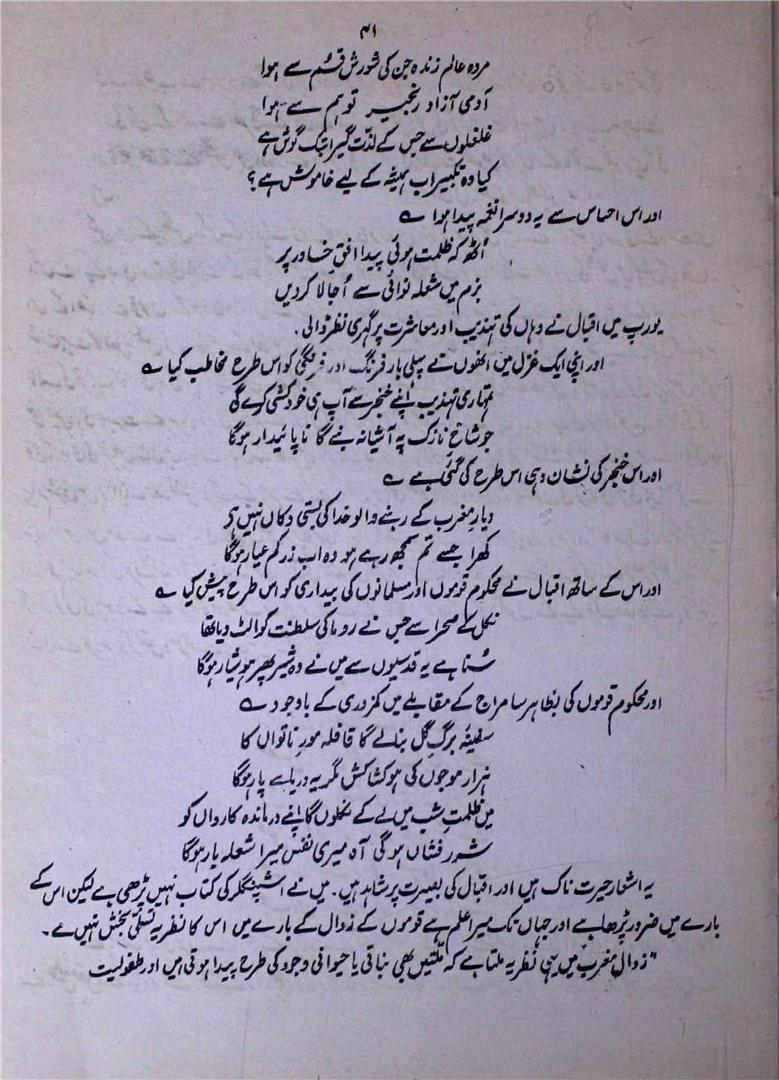 ۴۱
مردہ عالم زندہ جن کی شورش قُم سے ہوا
آدمی آزاد زنجیر توہم سے ہوا
غلغلوں سے جس کے لذّت گیر ابتک گوش ہے
کیا وہ تکبیر اب ہمیشہ کے لیے خاموش ہے؟
اور اس احساس سے یہ دوسرا نغمہ پیدا ہوا ے
اُٹھ کہ ظلمت ہوئی پیدا افقِ خاور پر
بزم میں شعلہ نوائی سے اُجالا کر دیں
یورپ میں اقبال نے وہاں کی تہذیب اور معاشرت پر گہری نظر ڈالی۔
اور اپنی ایک غزل میں انھوں نے پہلی بار فرنگ اور فرنگی کو اس طرح مخاطب کیا ے
تمہاری تہذیب اپنے خنجر سے آپ ہی خودکشی کرے گی
جو شاخِ نازک پہ آشیانہ بنے گا ناپائیدار ہوگا
اور اس خنجر کی نشان دہی اس طرح کی گئی ہے ے
دیارِ مغرب کے رہنے والو خدا کی بستی دکاں نہیں ہے
کھرا جسے تم سمجھ رہے ہو وہ اب زر کم عیار ہوگا
اور اس کے ساتھ اقبال نے محکوم قوموں اور مسلمانوں کی بیداری کو اس طرح پیش کیا ے
نکل کے صحرا سے جس نے روما کی سلطنت کو الٹ دیا تھا
سُنا ہے یہ قدسیوں سے میں نے وہ شیر پھر ہوشیار ہوگا
اور محکوم قوموں کی بظاہر سامراج کے مقابلے میں کمزوری کے باوجود ے
سفینۂ برگِ گل بنا لے گا قافلہ مور ناتواں کا
ہزار موجوں کی ہو کشاکش مگر یہ دریا سے پار ہوگا
میں ظلمتِ شب میں لے کے نکلوں گا اپنے درماندہ کارواں کو
شرر فشاں ہوگی آہ میری نفس میرا شعلہ بار ہوگا
یہ اشعار حیرت ناک ہیں اور اقبال کی بصیرت پر شاہد ہیں۔ میں نے اشپنگلر کی کتاب نہیں پڑھی ہے لیکن اس کے
بارے میں ضرور پڑھا ہے اور جہاں تک میرا علم ہے قوموں کے زوال کے بارے میں اس کا نظریہ تسلّی بخش نہیں ہے۔
"زوالِ مغرب میں یہی نظریہ ملتا ہے کہ ملّتیں بھی نباتی یا حیوانی وجود کی طرح پیدا ہوتی ہیں اور طفولیت